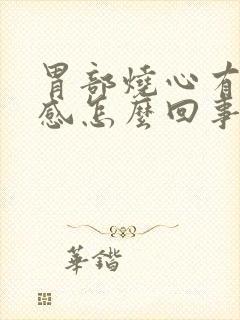 胃部燒心有
感怎麼回事
華鍇